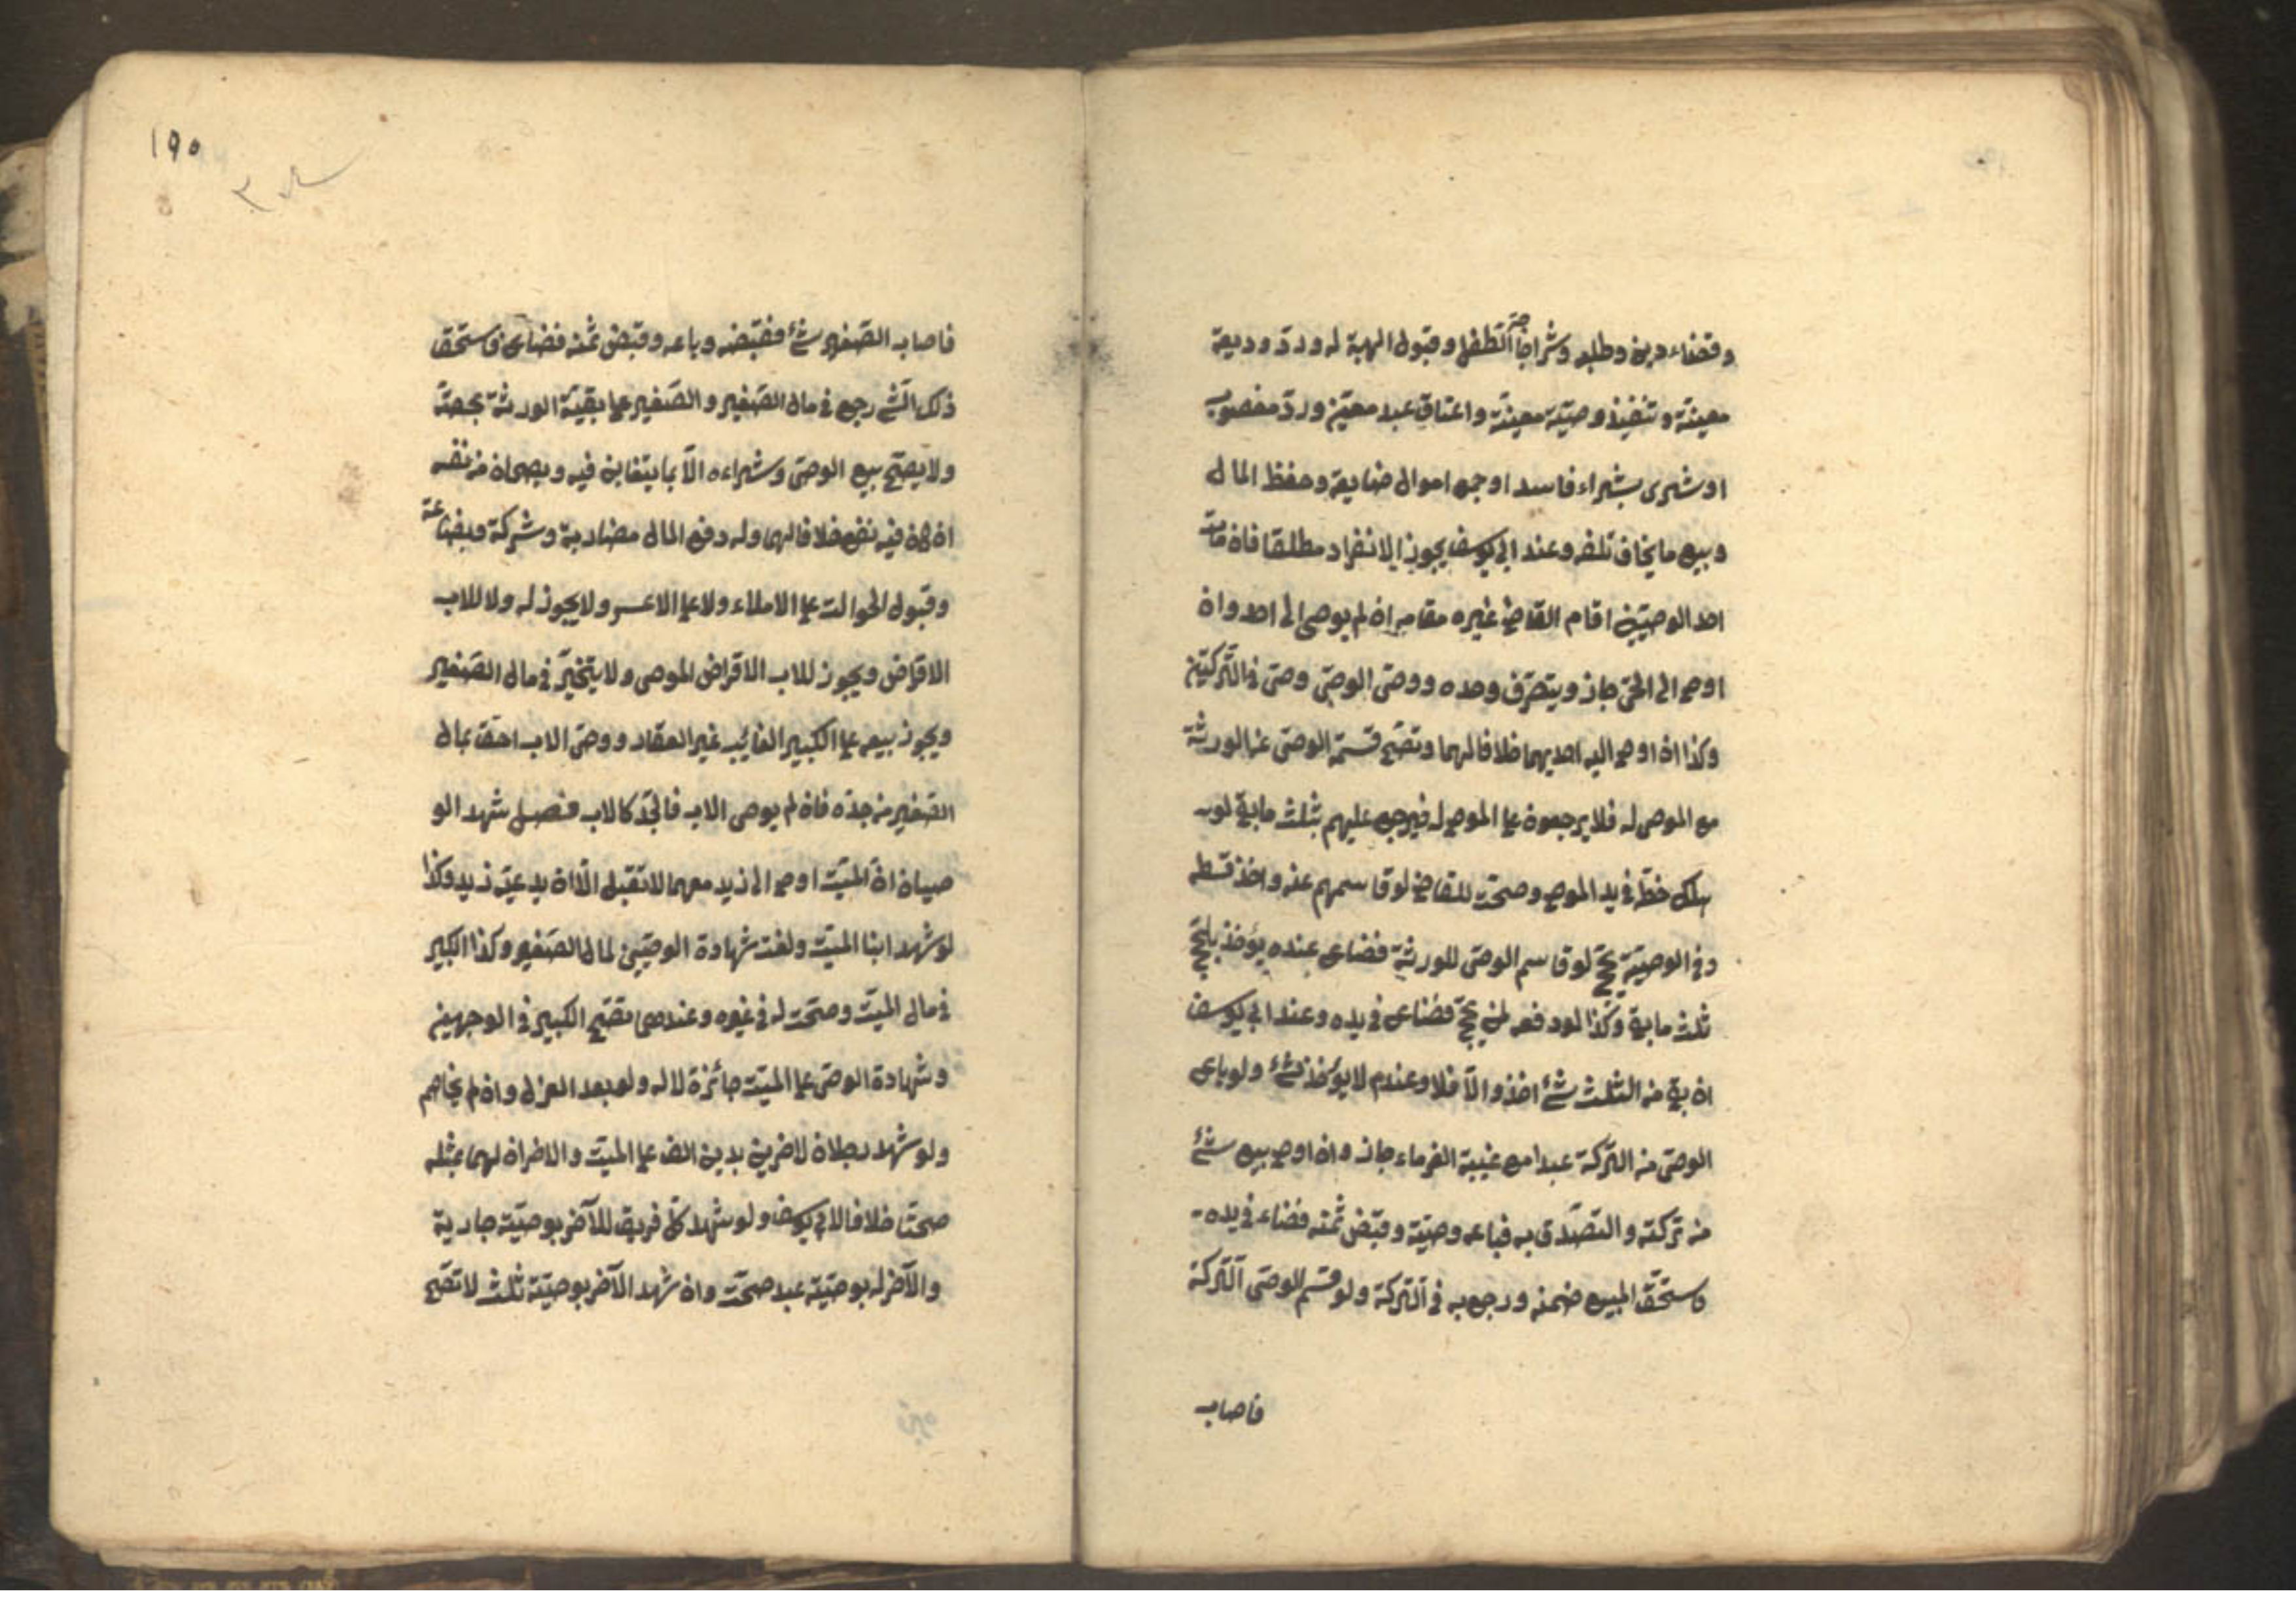 وقضاء دين وطلبه وشراء حاجة الطفل وقبول الهبة له ورد وديعة
معينة وتنفيذ وصيّة معينة واعتاق عبد معيّن وردّ مغصوب
او شرى بشراء فاسد او جمع اموال ضايعة وحفظ المال
وبيع ما يخاف تلفه وعند ابي يوسف يجوز الانفراد مطلقا فان مات
احد الوصيّين اقام القاضي غيره مقامه ان لم يوصى الى احد وان
اوصى الى الحيّ جاز ويتصرّف وحده ووصى الوصىّ وصىّ في التّركتين
وكذا ان اوصى اليه احديهما خلافا لهما وتصحّ قسمة الوصىّ عن الورثة
مع الموصى له فلا يرجعون على الموصى له فيرجع عليهم بثلث ما بقي لو
هلك حظّه في يد الموصى وصحّت للقاضي لو قاسمهم عنه واخذ قسطه
وفي الوصيّة بحجّ لو قاسم الوصىّ للورثة فضاع عنده يؤخذ بالحجّ
ثلث ما بقي وكذا لو دفعه لمن يحجّ فضاع في يده وعند ابي يوسف
ان بقي من الثلث شئ اخذ والّا فلا وعند م لا يؤخذ شئ ولو باع
الوصىّ من التّركة عبدا مع غيبة الغرماء جاز وان اوصى ببيع شئ
من تركته والتصدّق به فباعه وصيّه وقبض ثمنه فضاع في يده
فاستحقّ المبيع ضمنه ورجع به في التّركة ولو قسم الوصىّ التّركة
فاصاب
١٩٥
فاصاب الصّغير شئ فقبضه وباعه وقبض ثمنه فضاع فاستحق
ذلك الشّئ رجع في مال الصّغير والصّغير على بقيّة الورثة بحصّته
ولا يصحّ بيع الوصىّ وشراءه الّا بما يتغابن فيه ويصحان من نفسه
ان كان فيه نفع خلافا لهما وله دفع المال مضاربة وشركة وبضاعة
وقبول الحوالة على الاملاء ولا على الاعسر ولا يجوز له ولا للاب
الاقراض ويجوز للاب الاقراض الموصى ولا يتّجر في مال الصّغير
ويجوز بيعه على الكبير الغائب غير العقار ووصىّ الاب احقّ بمال
الصّغير من جدّه فان لم يوصى الاب فالجدّ كالاب فصل شهد الو
صيان انّ الميّت اوصى الى زيد معهما لا تقبل الّا ان يدعيه زيد وكذا
لو شهد ابنا الميّت ولغت شهادة الوصيّين لمال الصّغير وكذا الكبير
في مال الميّت وصحّت له في غيره وعندهما تصحّ الكبير في الوجهين
وشهادة الوصىّ على الميّت جائزة لا له ولو بعد العزل وان لم يخاصم
ولو شهد رجلان لاخرين بدين الف على الميّت والاخران لهما بمثله
صحّتا خلافا لابي يوسف ولو شهد كلّ فريق للآخر بوصيّة جارية
والآخر له بوصيّة عبد صحّت وان شهد الآخر بوصيّة ثلث لا تصحّ